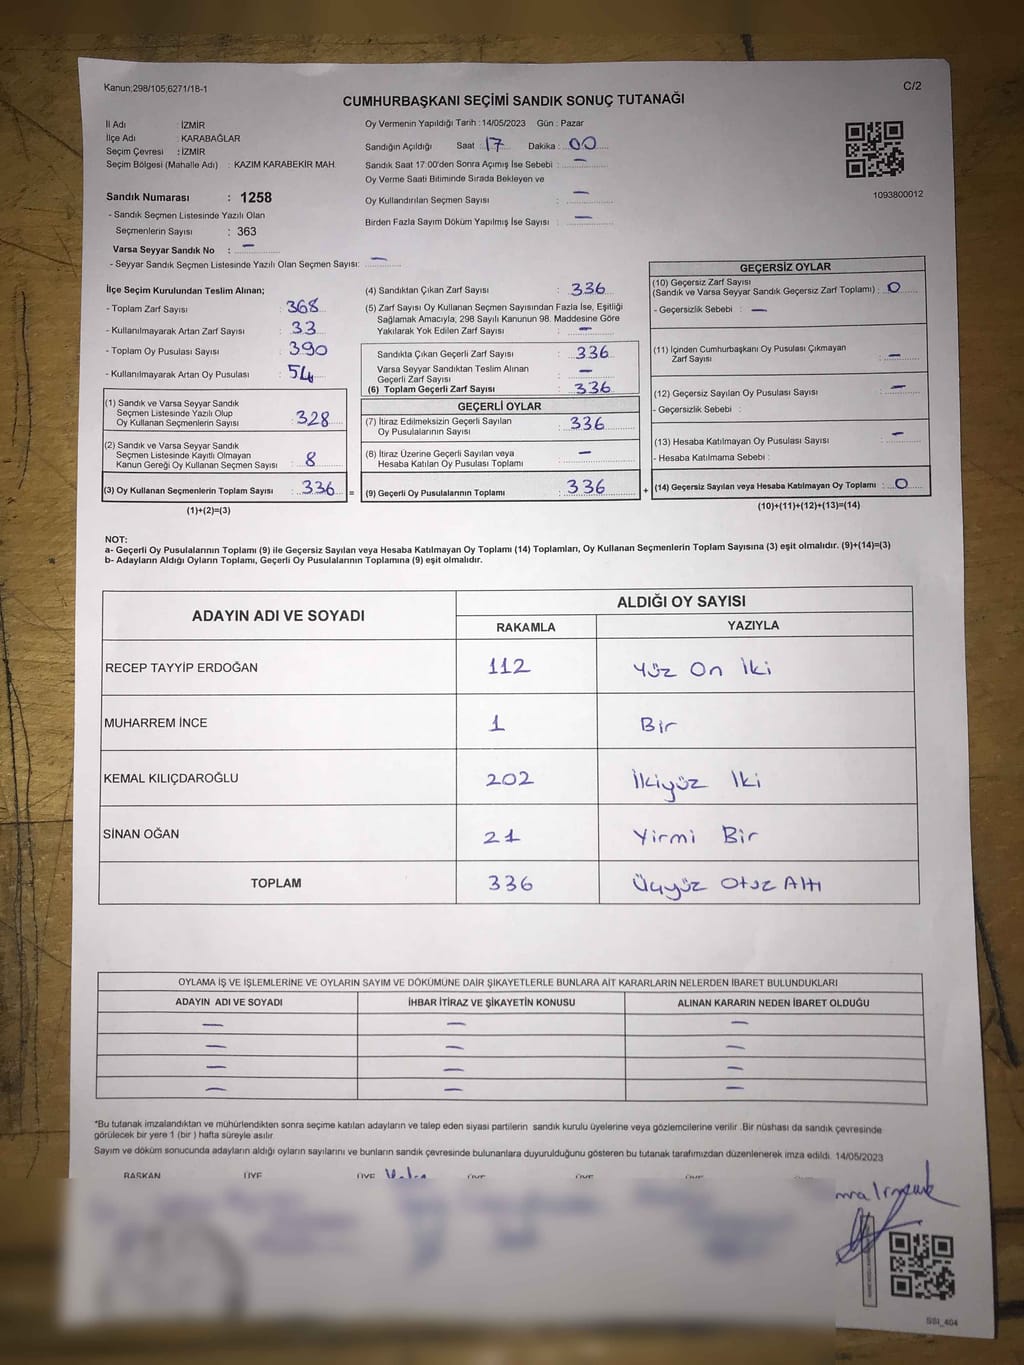 Kanun;298/105,6271/18-1
C/2
CUMHURBAŞKANI SEÇİMİ SANDIK SONUÇ TUTANAĞI
İl Adı : İZMİR
İlçe Adı : KARABAĞLAR
Seçim Çevresi : İZMİR
Seçim Bölgesi (Mahalle Adı) : KAZIM KARABEKİR MAH.
Sandık Numarası : 1258
- Sandık Seçmen Listesinde Yazılı Olan
Seçmenlerin Sayısı : 363
Varsa Seyyar Sandık No : —
- Seyyar Sandık Seçmen Listesinde Yazılı Olan Seçmen Sayısı: —
Oy Vermenin Yapıldığı Tarih : 14/05/2023 Gün : Pazar
Sandığın Açıldığı Saat : 17 Dakika : 00
Sandık Saat 17:00'den Sonra Açımış İse Sebebi : —
Oy Verme Saati Bitiminde Sırada Bekleyen ve
Oy Kullandırılan Seçmen Sayısı : —
Birden Fazla Sayım Döküm Yapılmış İse Sayısı : —
1093800012
İlçe Seçim Kurulundan Teslim Alınan;
- Toplam Zarf Sayısı : 368
- Kullanılmayarak Artan Zarf Sayısı : 33
- Toplam Oy Pusulası Sayısı : 390
- Kullanılmayarak Artan Oy Pusulası : 54
(1) Sandık ve Varsa Seyyar Sandık
Seçmen Listesinde Yazılı Olup
Oy Kullanan Seçmenlerin Sayısı : 328
(2) Sandık ve Varsa Seyyar Sandık
Seçmen Listesinde Kayıtlı Olmayan
Kanun Gereği Oy Kullanan Seçmen Sayısı : 8
(3) Oy Kullanan Seçmenlerin Toplam Sayısı : 336 =
(1)+(2)=(3)
(4) Sandıktan Çıkan Zarf Sayısı : 336
(5) Zarf Sayısı Oy Kullanan Seçmen Sayısından Fazla İse, Eşitliği
Sağlamak Amacıyla; 298 Sayılı Kanunun 98. Maddesine Göre
Yakılarak Yok Edilen Zarf Sayısı : —
Sandıkta Çıkan Geçerli Zarf Sayısı : 336
Varsa Seyyar Sandıktan Teslim Alınan
Geçerli Zarf Sayısı : —
(6) Toplam Geçerli Zarf Sayısı : 336
GEÇERLİ OYLAR
(7) İtiraz Edilmeksizin Geçerli Sayılan
Oy Pusulalarının Sayısı : 336
(8) İtiraz Üzerine Geçerli Sayılan veya
Hesaba Katılan Oy Pusulası Toplamı : —
(9) Geçerli Oy Pusulalarının Toplamı : 336 +
GEÇERSİZ OYLAR
(10) Geçersiz Zarf Sayısı
(Sandık ve Varsa Seyyar Sandık Geçersiz Zarf Toplamı) : 0
- Geçersizlik Sebebi : —
(11) İçinden Cumhurbaşkanı Oy Pusulası Çıkmayan
Zarf Sayısı : —
(12) Geçersiz Sayılan Oy Pusulası Sayısı : —
- Geçersizlik Sebebi :
(13) Hesaba Katılmayan Oy Pusulası Sayısı : —
- Hesaba Katılmama Sebebi :
(14) Geçersiz Sayılan veya Hesaba Katılmayan Oy Toplamı : 0
(10)+(11)+(12)+(13)=(14)
NOT:
a- Geçerli Oy Pusulalarının Toplamı (9) ile Geçersiz Sayılan veya Hesaba Katılmayan Oy Toplamı (14) Toplamları, Oy Kullanan Seçmenlerin Toplam Sayısına (3) eşit olmalıdır. (9)+(14)=(3)
b- Adayların Aldığı Oyların Toplamı, Geçerli Oy Pusulalarının Toplamına (9) eşit olmalıdır.
ADAYIN ADI VE SOYADI ALDIĞI OY SAYISI
RAKAMLA YAZIYLA
RECEP TAYYİP ERDOĞAN 112 Yüz On İki
MUHARREM İNCE 1 Bir
KEMAL KILIÇDAROĞLU 202 İkiyüz İki
SİNAN OĞAN 21 Yirmi Bir
TOPLAM 336 Üçyüz Otuz Altı
OYLAMA İŞ VE İŞLEMLERİNE VE OYLARIN SAYIM VE DÖKÜMÜNE DAİR ŞİKAYETLERLE BUNLARA AİT KARARLARIN NELERDEN İBARET BULUNDUKLARI
ADAYIN ADI VE SOYADI İHBAR İTİRAZ VE ŞİKAYETİN KONUSU ALINAN KARARIN NEDEN İBARET OLDUĞU
— — —
— — —
— — —
— — —
*Bu tutanak imzalandıktan ve mühürlendikten sonra seçime katılan adayların ve talep eden siyasi partilerin sandık kurulu üyelerine veya gözlemcilerine verilir .Bir nüshası da sandık çevresinde
görülecek bir yere 1 (bir ) hafta süreyle asılır.
Sayım ve döküm sonucunda adayların aldığı oyların sayılarını ve bunların sandık çevresinde bulunanlara duyurulduğunu gösteren bu tutanak tarafımızdan düzenlenerek imza edildi. 14/05/2023
BAŞKAN ÜYE ÜYE ÜYE ÜYE ÜYE
SSI_404